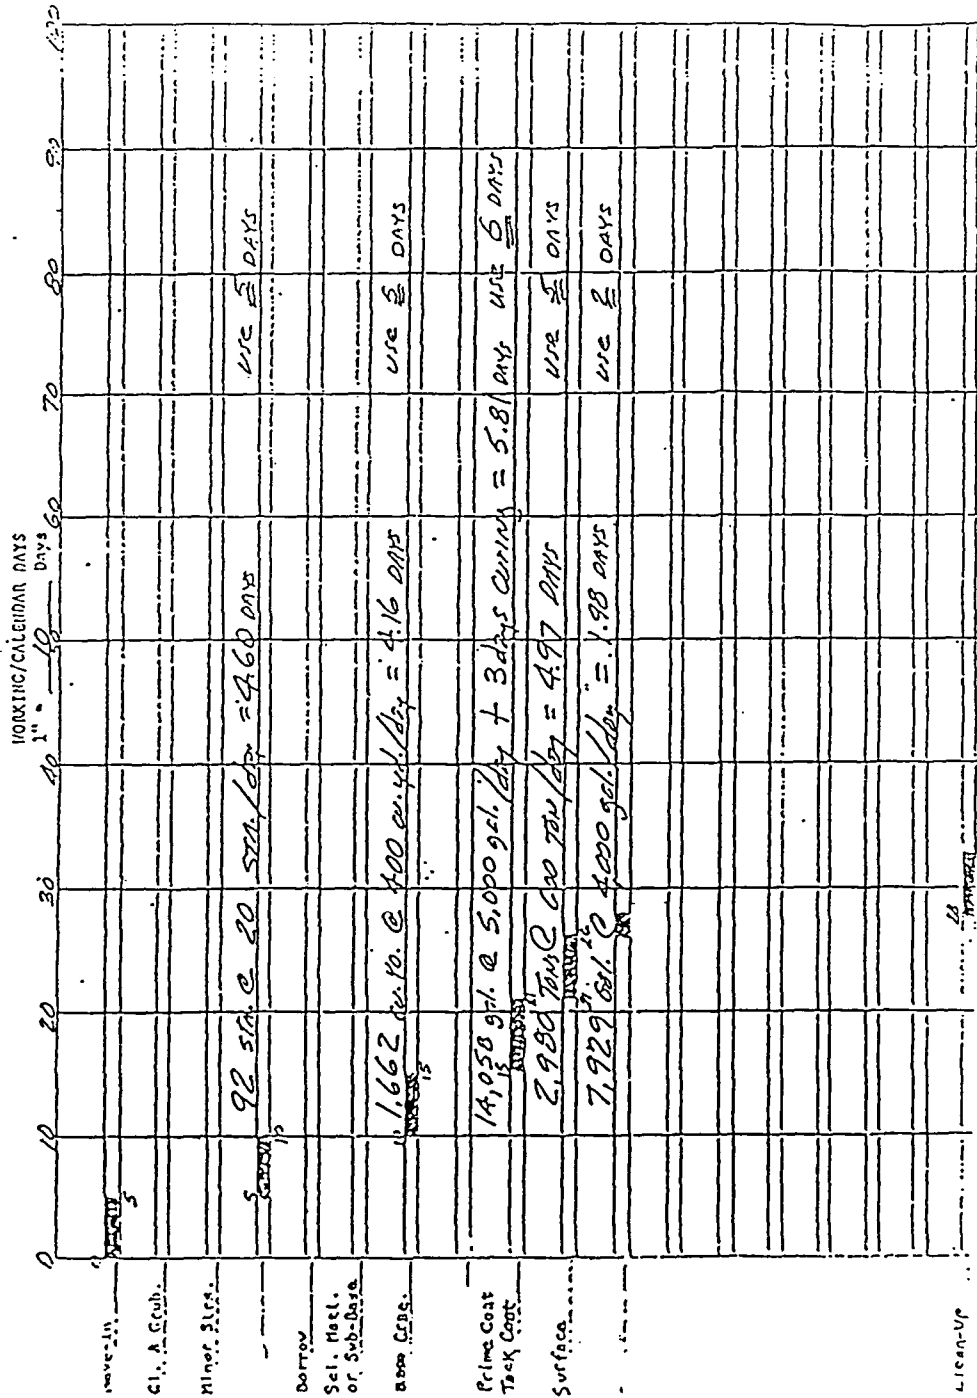 WORKING/CALENDAR DAYS
1" = 10 Days
0 10 20 30 40 50 60 70 80 90 100
Move-In
0 5
Cl. & Grub.
Minor Strs.
92 STA. @ 20 STA./day = 4.60 DAYS USE 5 DAYS
5 10
Borrow
Sel. Matl.
or Sub-Base
Base Crse.
1,662 cu. yd. @ 400 cu. yd./day = 4.16 DAYS USE 5 DAYS
10 15
Prime Coat
Tack Coat
14,058 gal. @ 5,000 gal./day + 3 days curing = 5.81 DAYS USE 6 DAYS
15 21
Surface
2,980 TONS @ 600 TON/day = 4.97 DAYS USE 5 DAYS
21 26
7,929 Gal. @ 4,000 gal./day = 1.98 DAYS USE 2 DAYS
Clean-Up
28